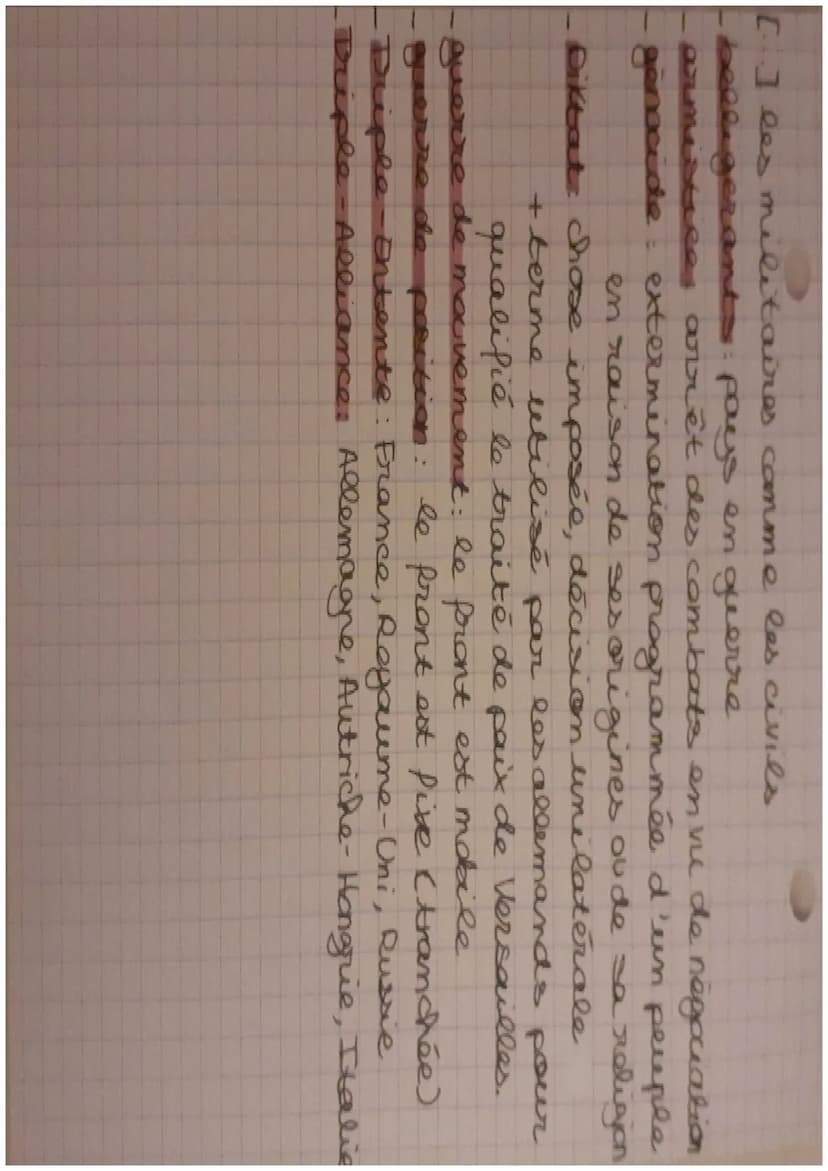 [...] les militaires comme les civils
- belligerants : pays en guerre
- armistice : arrêt des combats en vu de négociation
- génocide : extermination programmée d'un peuple
en raison de ses origines ou de sa religion
- Diktat : chose imposée, décision unilatérale
+ terme utilisé par les allemands pour
qualifié le traité de paix de Versailles.
- guerre de mouvement : le front est mobile
- guerre de position : le front est fixe (tranchée)
- Triple-Entente : France, Royaume-Uni, Russie
- Triple-Alliance : Allemagne, Autriche-Hongrie, Italie